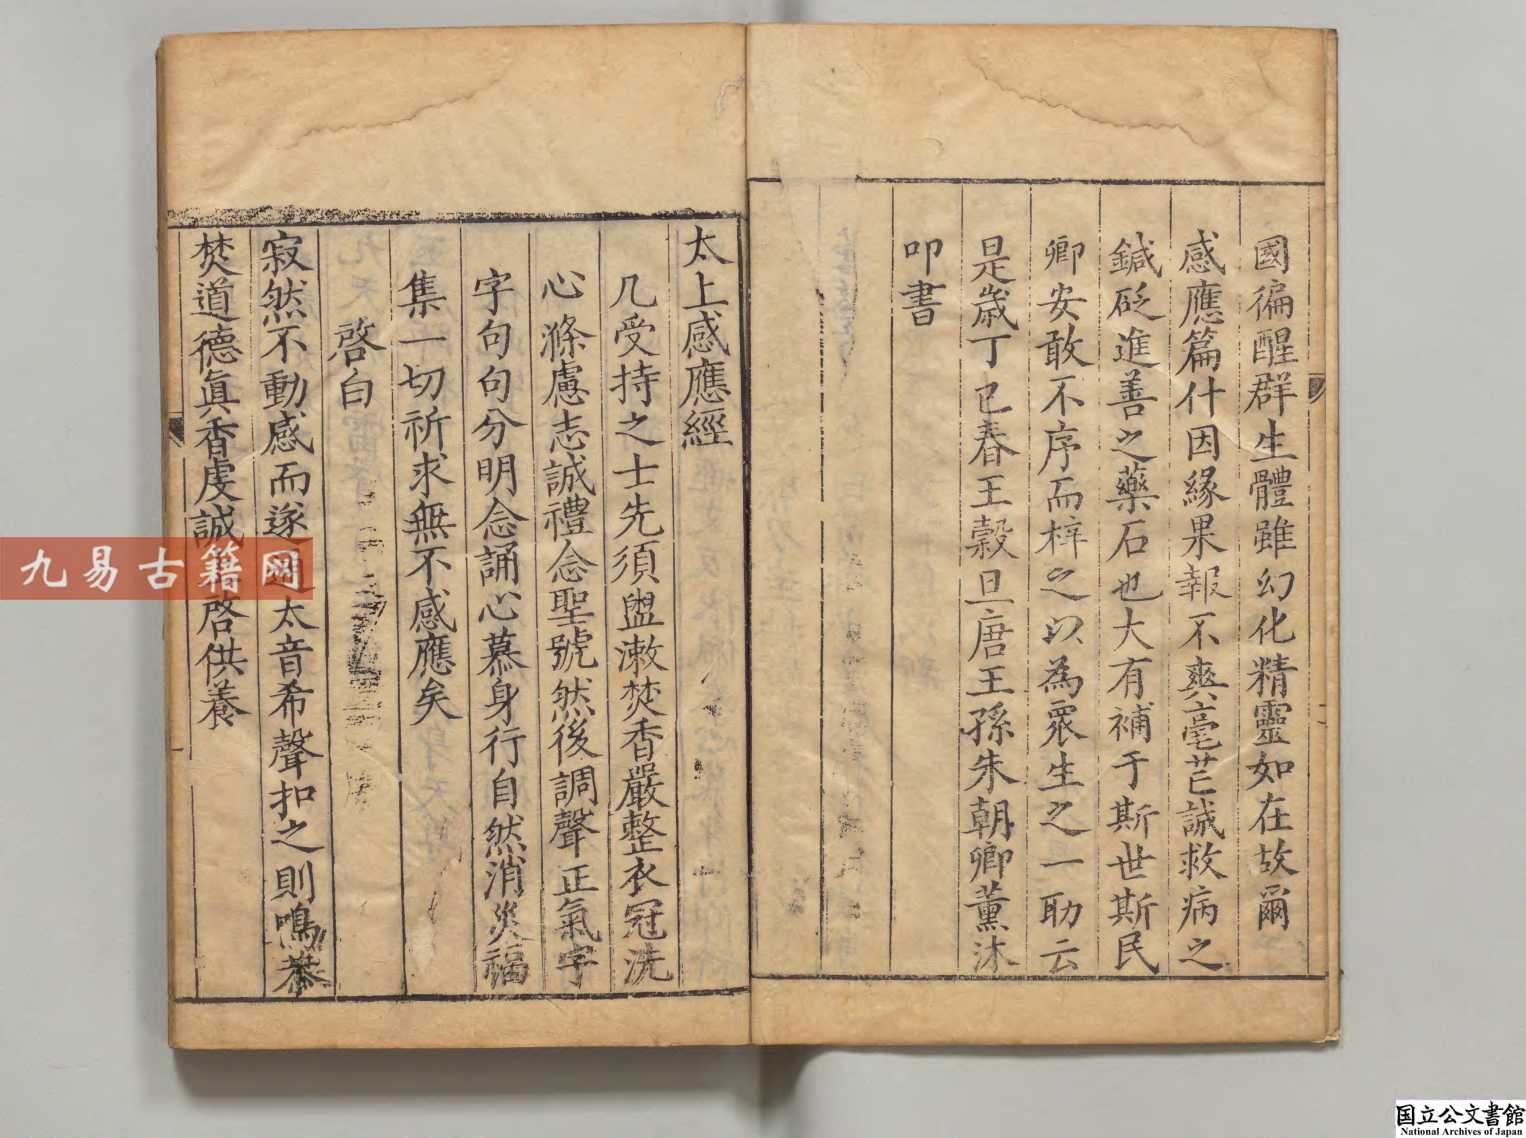 國徧醒群生體雖幻化精靈如在故爾
感應篇什因緣果報不爽毫芒誠救病之
鍼砭進善之藥石也大有補于斯世斯民
卿安敢不序而梓之以為衆生之一助云
是歲丁巳春王穀旦唐王孫朱朝卿薰沐
叩書
太上感應經
凢受持之士先須盥漱焚香嚴整衣冠洗
心滌慮志誠禮念聖號然後調聲正氣字
字句句分明念誦心慕身行自然消災福
集一切祈求無不感應矣
啓白
寂然不動感而遂通太音希聲扣之則鳴恭
焚道德眞香虔誠啓供養
九易古籍网
国立公文書館
National Archives of Japan